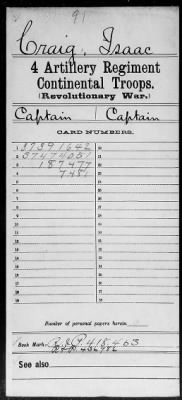 91
Craig, Isaac
4 Artillery Regiment
Continental Troops.
(Revolutionary War.)
Captain Captain
CARD NUMBERS.
1 37391642 20
2 37474051 21
3 187477 22
4 7481 23
5 24
6 25
7 26
8 27
9 28
10 29
11 30
12 31
13 32
14 33
15 34
16 35
17 36
18 37
19 38
Number of personal papers herein
Book Mark: R & P 418463
R & P 436986
See also